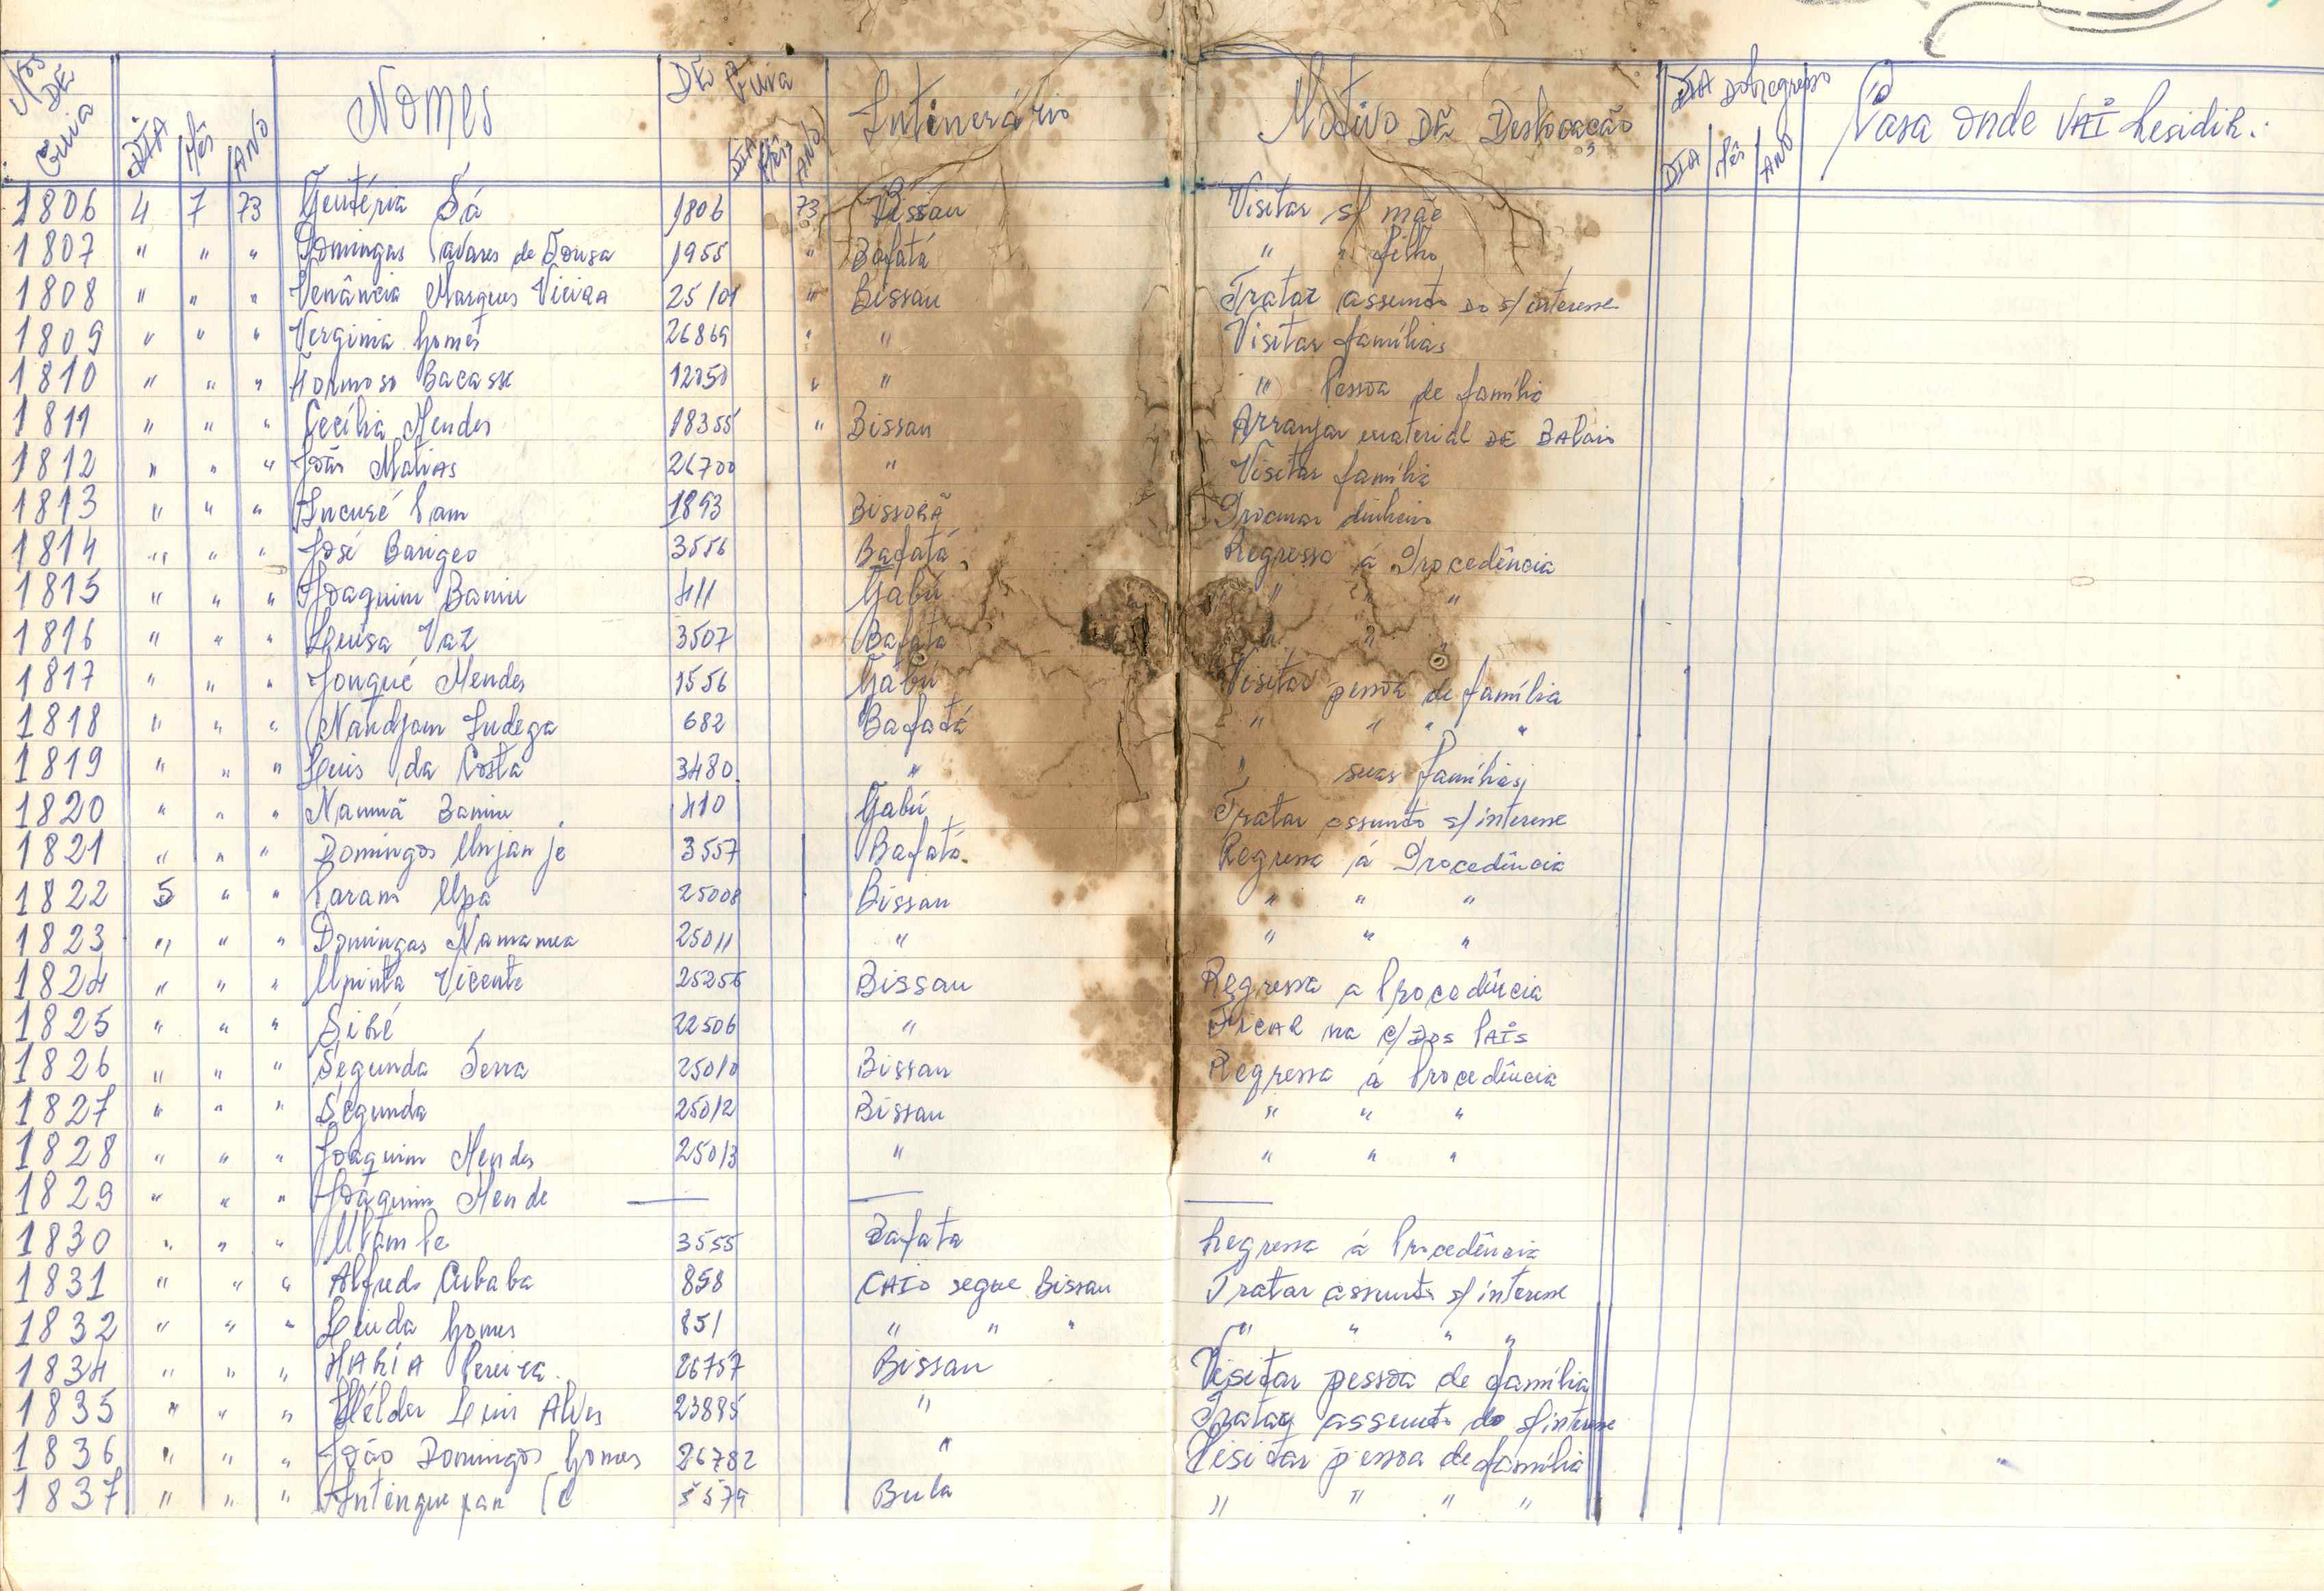 Nos DE Guia DIA Mês ANO Nomes DE Guia DIA Mês ANO Intinerário Motivo DE Deslocação DIA do Regresso DIA Mês ANO Casa onde VAI Residir.:
1806 4 7 73 Sá 1806 73 Bissau Visitar s/ mãe
1807 " " " Domingas Tavares de Sousa 1955 " Bafatá " " filho
1808 " " " Venância Marques Vieira 25101 " Bissau Tratar assunto do s/ interesse
1809 " " " Verginia Gomes 26869 " " Visitar famílias
1810 " " " Formoso Bacasse 12050 " " " Pessoa de família
1811 " " " Cecília Mendes 18355 " Bissau Arranjar material DE BAlaio
1812 " " " João Matias 26700 " Visitar família
1813 " " " 1893 BissoRÃ Procurar dinheiro
1814 " " " José 3556 Bafatá Regresso á Procedência
1815 " " " Joaquim 411 Gabú " " "
1816 " " " Luisa Vaz 3507 Bafatá " " "
1817 " " " Jongué Mendes 1556 Gabú Visitar pessoa de família
1818 " " " Nandjam Indega 682 Bafatá " " " "
1819 " " " Luis da Costa 3480 " " suas famílias
1820 " " " 410 Gabú Tratar assunto s/ interesse
1821 " " " Domingos Unjanje 3557 Bafatá Regressa á Procedência
1822 5 " " Upá 25008 Bissau " " "
1823 " " " Domingas Namanca 25011 " " " "
1824 " " " Upinta Vicente 25256 Bissau Regressa a Procedência
1825 " " " Siré 22506 " FicAR na c/ Dos PAIs
1826 " " " Segunda 25010 Bissau Regressa á Procedência
1827 " " " Segunda 25012 Bissau " " "
1828 " " " Joaquim Mendes 25013 " " " "
1829 " " " Joaquim Mende — — —
1830 " " " 3555 Bafata Regressa á Procedência
1831 " " " Alfredo Cubaba 858 CAIO segue Bissau Tratar assunto s/ interesse
1832 " " " Linda Gomes 851 " " " " " " "
1834 " " " MARIA Pereira 26757 Bissau Visitar pessoa de família
1835 " " " Hélder Luis Alves 23895 " Tratar assunto do s/ interesse
1836 " " " João Domingos Gomes 26782 " Visitar pessoa de família
1837 " " " 5579 Bula " " " "